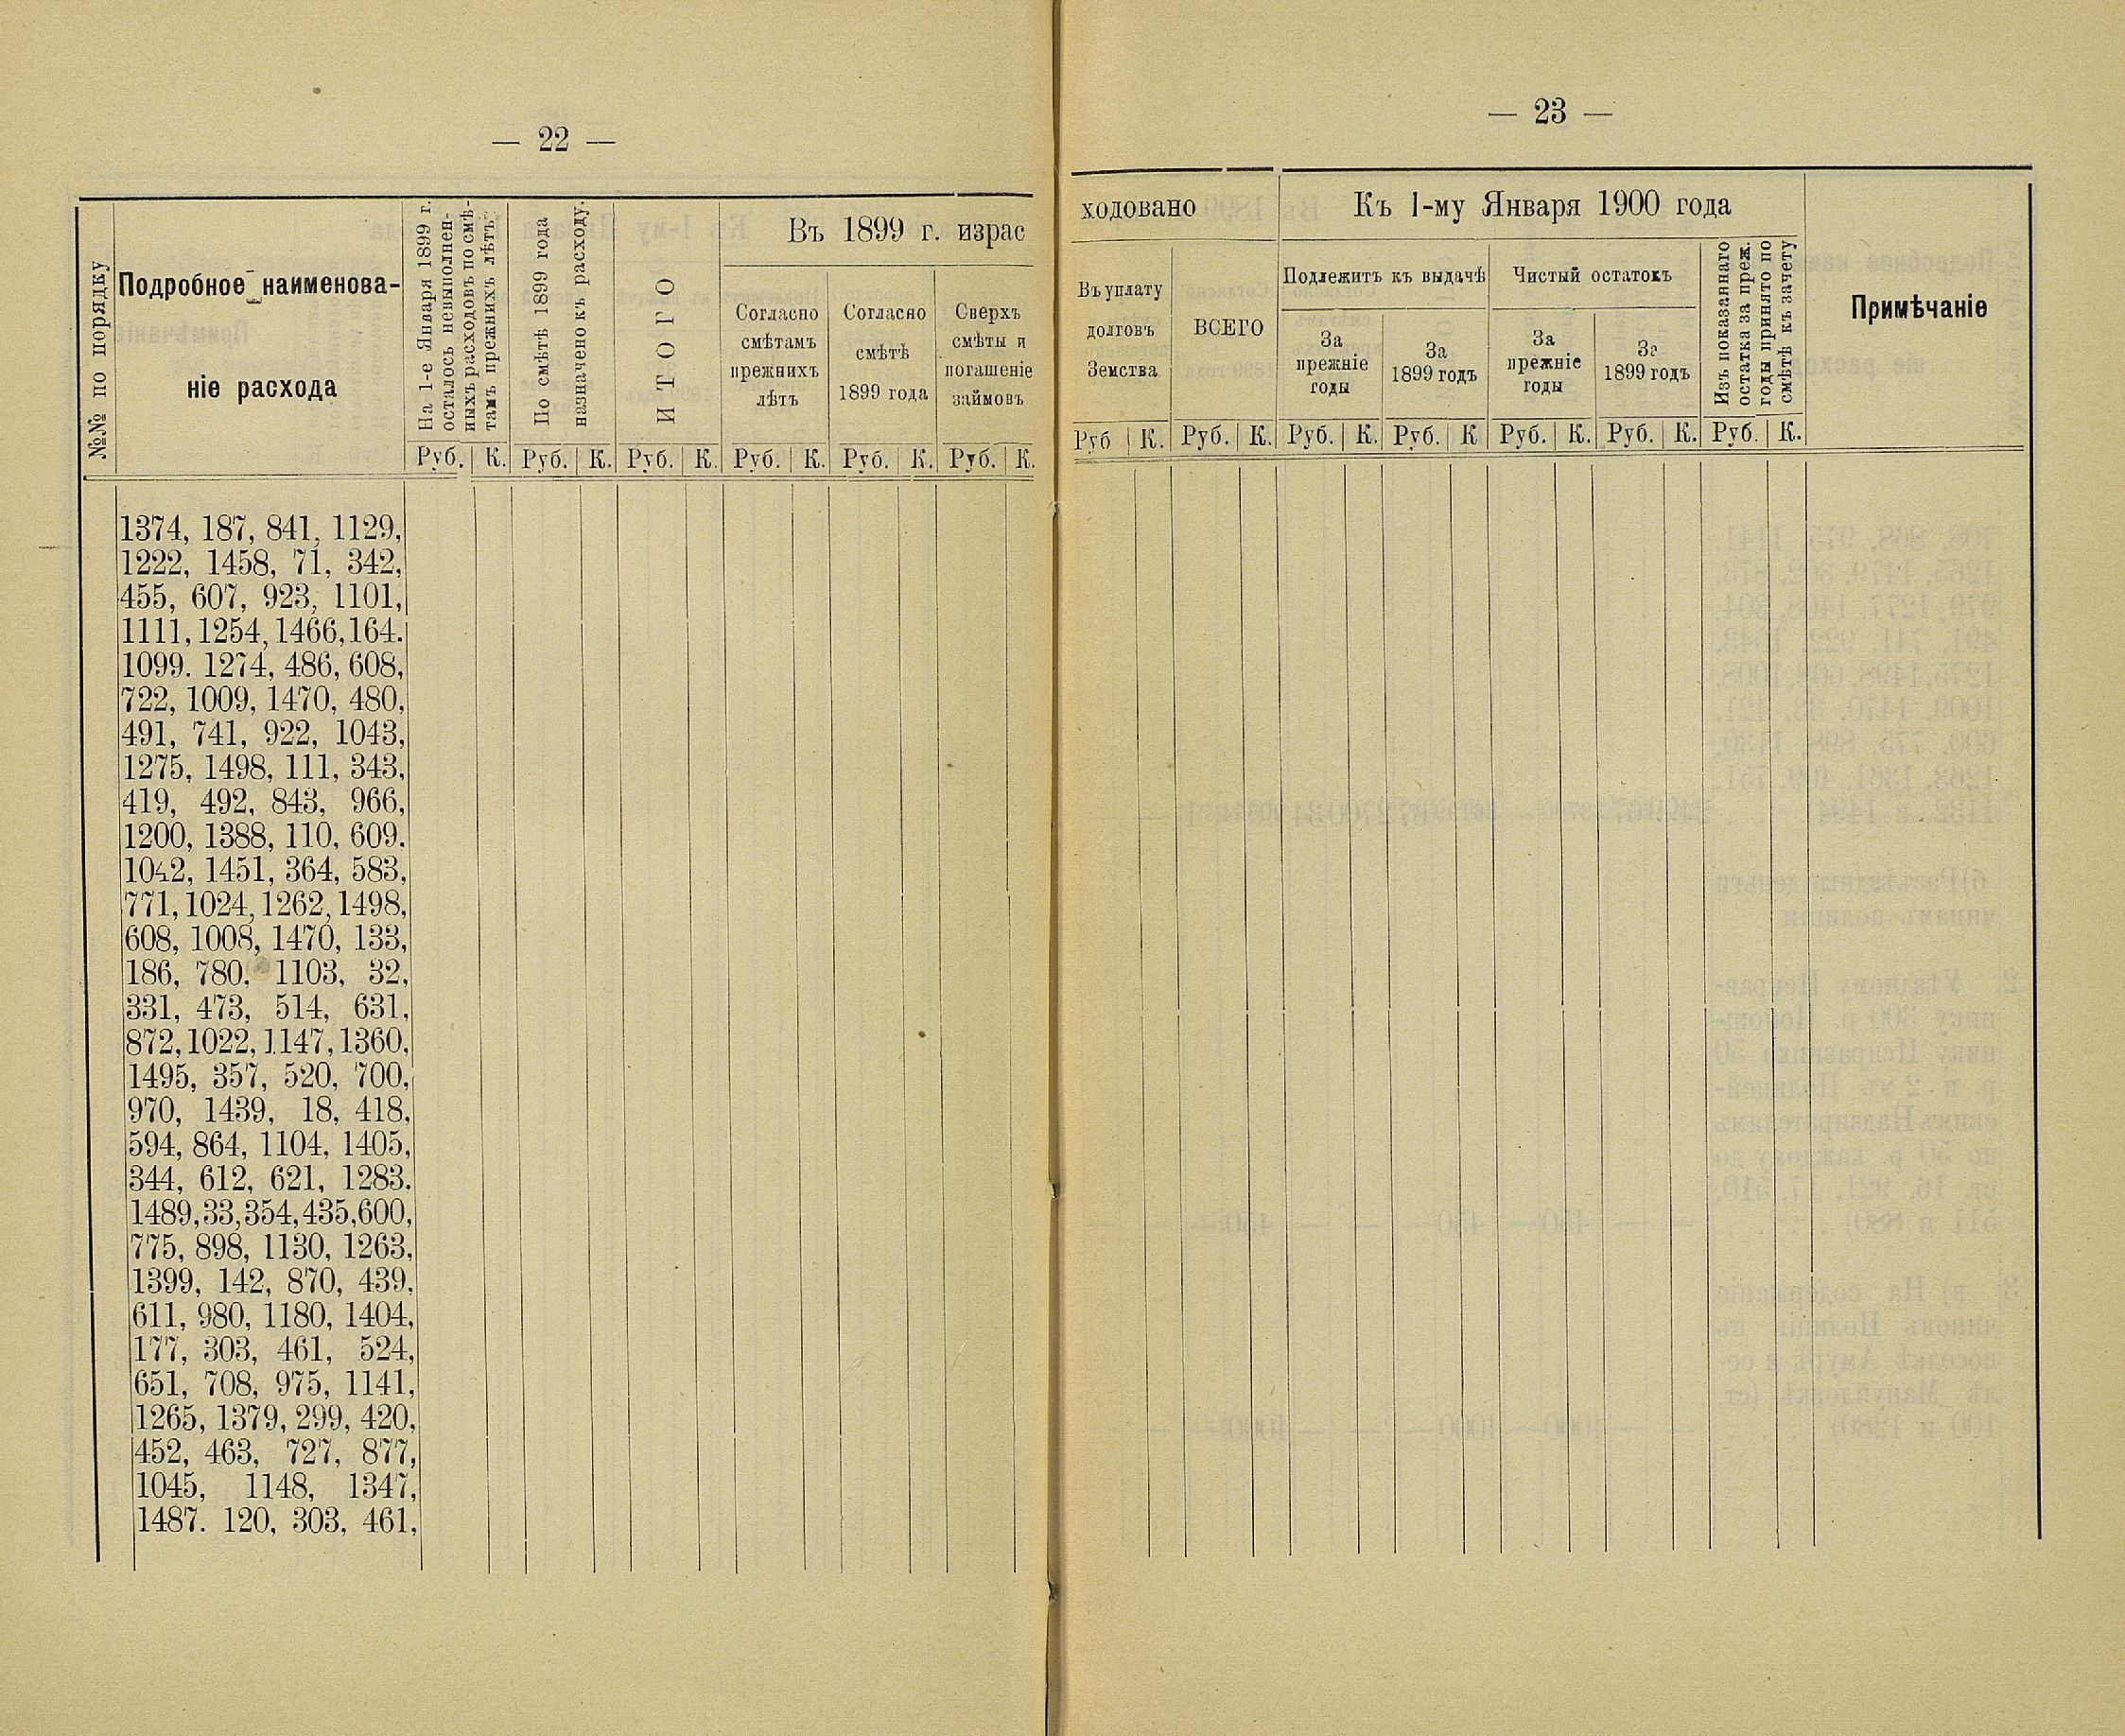 — 22 —
№№ по порядку
Подробное наименова-
ніе расхода
На 1-е Января 1899 г.
осталось невыполнен-
ныхъ расходовъ по смѣ-
тамъ прежнихъ лѣтъ.
По смѣтѣ 1899 года
назначено къ расходу.
ИТОГО
Въ 1899 г. израс
Согласно
смѣтамъ
прежнихъ
лѣтъ
Согласно
смѣтѣ
1899 года
Сверхъ
смѣты и
погашеніе
займовъ
Руб. К. Руб. К. Руб. К. Руб. К. Руб. К. Руб. К.
1374, 187, 841, 1129,
1222, 1458, 71, 342,
455, 607, 923, 1101,
1111, 1254, 1466, 164.
1099. 1274, 486, 608,
722, 1009, 1470, 480,
491, 741, 922, 1043,
1275, 1498, 111, 343,
419, 492, 843, 966,
1200, 1388, 110, 609.
1042, 1451, 364, 583,
771, 1024, 1262, 1498,
608, 1008, 1470, 133,
186, 780, 1103, 32,
331, 473, 514, 631,
872, 1022, 1147, 1360,
1495, 357, 520, 700,
970, 1439, 18, 418,
594, 864, 1104, 1405,
344, 612, 621, 1283.
1489, 33, 354, 435, 600,
775, 898, 1130, 1263,
1399, 142, 870, 439,
611, 980, 1180, 1404,
177, 303, 461, 524,
651, 708, 975, 1141,
1265, 1379, 299, 420,
452, 463, 727, 877,
1045, 1148, 1347,
1487. 120, 303, 461,
— 23 —
ходовано
Къ 1-му Января 1900 года
Въ уплату
долговъ
Земства
ВСЕГО
Подлежитъ къ выдачѣ
За
прежніе
годы
За
1899 годъ
Чистый остатокъ
За
прежніе
годы
За
1899 годъ
Изъ показаннаго
остатка за преж.
годы принято по
смѣтѣ къ зачету
Примѣчаніе
Руб К. Руб. К. Руб. К. Руб. К Руб. К. Руб. К. Руб. К.